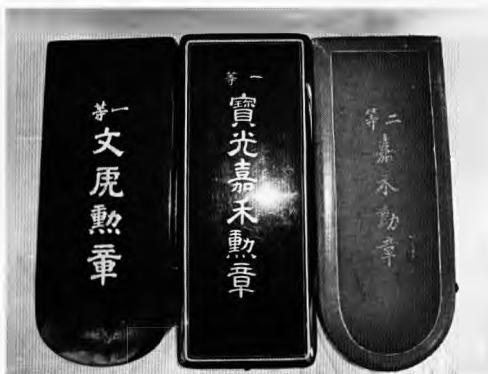 一等
文虎勳章
一等
寶光嘉禾勳章
二等
嘉禾勳章